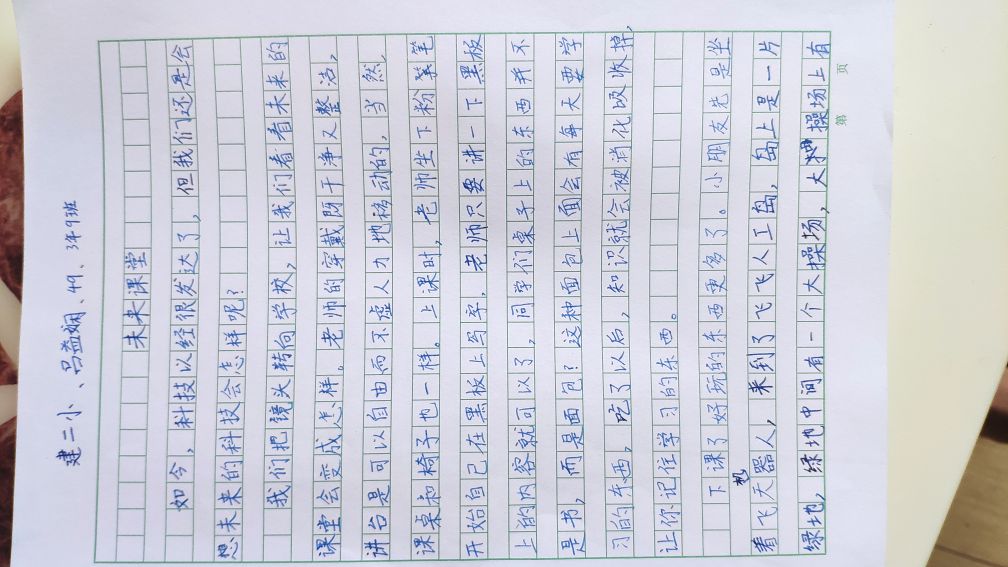 建二小、吕益娴、49、3年9班
未来课堂
如今，科技以经很发达了，但我们还是会
想未来的科技会怎样呢？
我们把镜头转向学校，让我们看看未来的
课堂会变成怎样。老师的穿戴既干净又整洁，
讲台是可以自由而不虚人力地移动的，当然，
课桌和椅子也一样。上课时，老师坐下粉笔
开始自己在黑板上写字，老师只要讲一下黑板
上的内容就可以了，同学们桌子上的东西并不
是书，而是面包？这种面包上面会有每天要学
习的东西，吃了以后，知识就会被消化吸收掉，
让你记住学习的东西。
下课了好玩的东西更多了。小朋友先是坐
着飞天机器人，来到了飞飞人工岛，岛上是一片
绿地，绿地中间有一个大操场，大操场上有
第 页